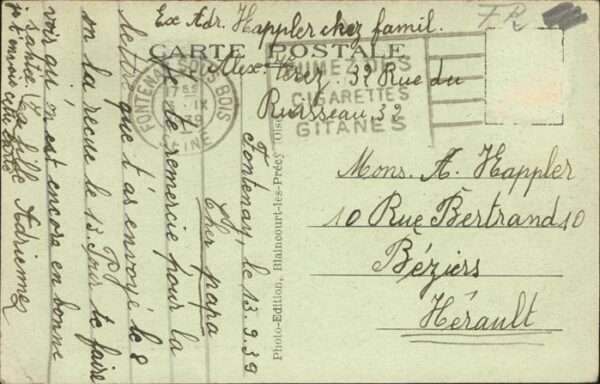 Ex Adr. Happler chez famil.
Alex. Pérez. 32 Rue du
Ruisseau, 32
CARTE POSTALE
FONTENAY-SOUS-BOIS
17 59
IX
39
SEINE
FUMEZ LES
CIGARETTES
GITANES
FR
Mons. A. Happler
10 Rue Bertrand 10
Béziers
Hérault
Photo-Edition, Blaincourt-les-Précy (Oise)
Fontenay, le 13.9.39
Cher papa
Je te remercie pour la
lettre que t'as envoyé le 8
on la reçue le 13. Pour te faire
voir qu'on est encore en bonne
santée
je t'envoi cette carte
Ta fille Adrienne